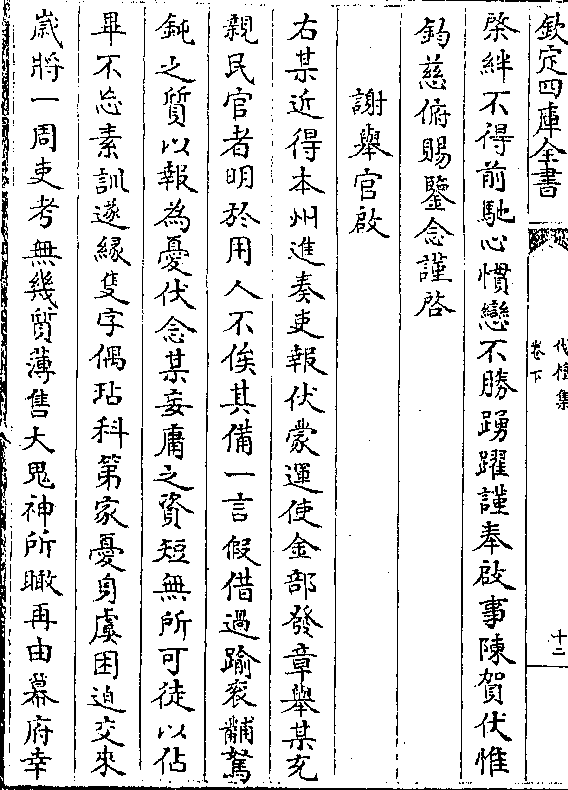 欽定四庫全書
卷下
十二
棨絆不得前馳心慣戀不勝踴躍謹奉啟事陳賀伏惟
鈞慈俯賜鑒念謹啓
謝舉官啟
右某近得本州進奏吏報伏蒙運使金部發章舉某充
親民官者明於用人不俟其備一言假借過踰衮黼駑
鈍之質以報為憂伏念某妄庸之資短無所可徒以佔
畢不忘素訓遂緣隻字偶玷科第家憂身虞困迫交來
歲將一周吏考無幾質薄售大鬼神所瞰再由幕府幸